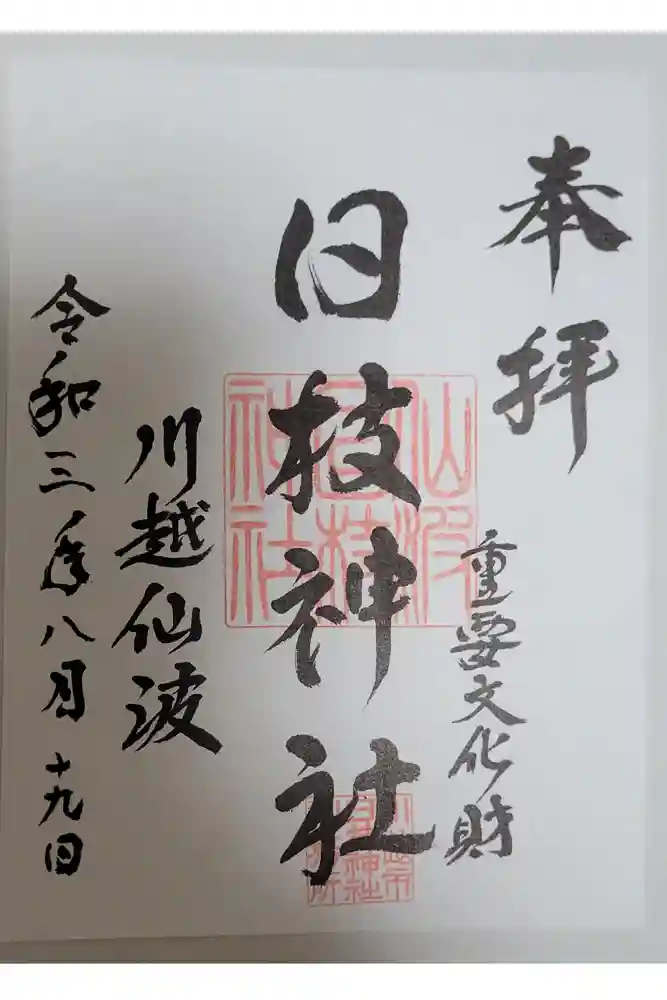 奉拝
重要文化財
日枝神社
仙波
日枝
神社
川越仙波
令和三年八月十九日